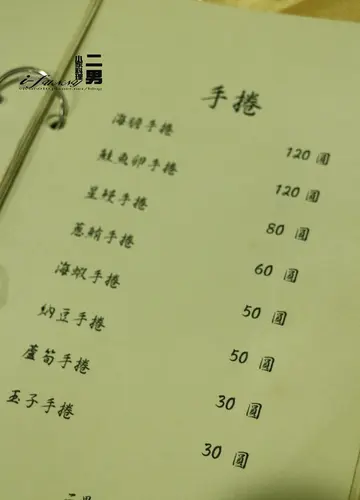 二男
i-Funny
手捲
海膽手捲 120 圓
鮭魚卵手捲 120 圓
星鰻手捲 80 圓
蔥鮪手捲 60 圓
海蝦手捲 50 圓
納豆手捲 50 圓
蘆筍手捲 30 圓
玉子手捲 30 圓